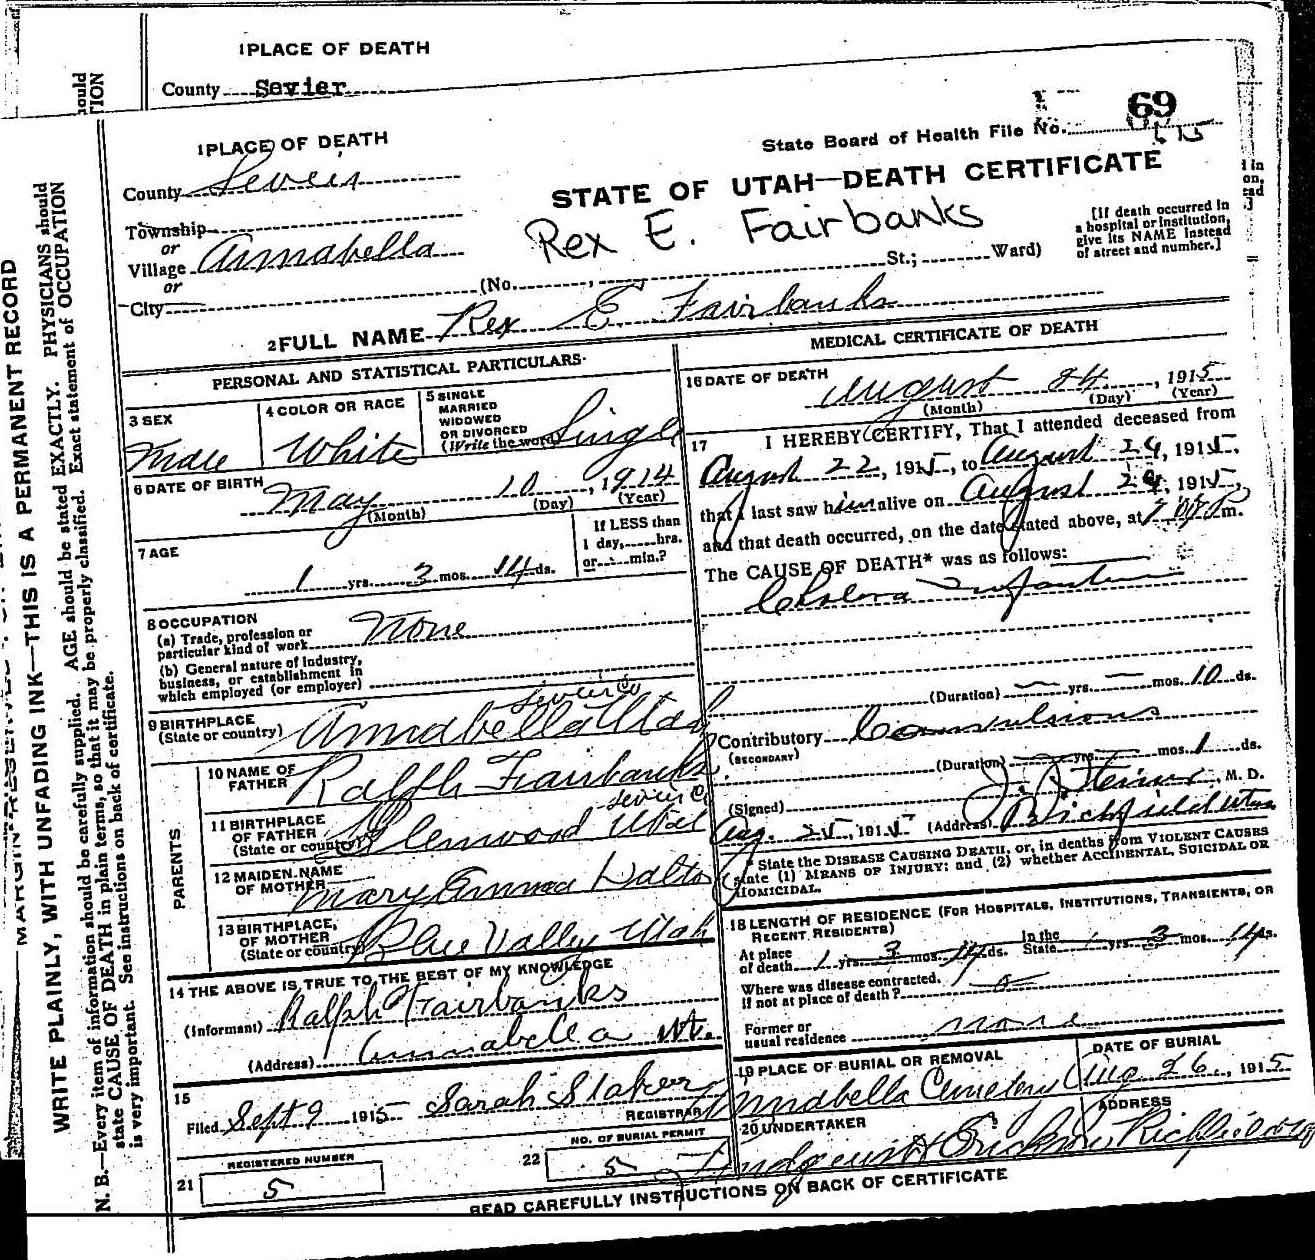 1 PLACE OF DEATH
County Sevier
1 PLACE OF DEATH
County Sevier
Township
or
Village Annabella
or
City
State Board of Health File No. 69
STATE OF UTAH—DEATH CERTIFICATE
Rex E. Fairbanks
(No. St.; Ward)
[If death occurred in
a hospital or institution,
give its NAME instead
of street and number.]
2 FULL NAME Rex E Fairbanks
PERSONAL AND STATISTICAL PARTICULARS
3 SEX
Male
4 COLOR OR RACE
White
5 SINGLE
MARRIED
WIDOWED
OR DIVORCED
(Write the word) Single
6 DATE OF BIRTH
May 10, 1914
(Month) (Day) (Year)
7 AGE
1 yrs. 3 mos. 14 ds.
If LESS than
1 day, hrs.
or min.?
8 OCCUPATION
(a) Trade, profession or
particular kind of work None
(b) General nature of industry,
business, or establishment in
which employed (or employer)
9 BIRTHPLACE
(State or country) Annabella Sevier Co Utah
PARENTS
10 NAME OF
FATHER Ralph Fairbanks
11 BIRTHPLACE
OF FATHER
(State or country) Glenwood Sevier Co Utah
12 MAIDEN NAME
OF MOTHER Mary Emma Dalton
13 BIRTHPLACE,
OF MOTHER
(State or country) Blue Valley Utah
14 THE ABOVE IS TRUE TO THE BEST OF MY KNOWLEDGE
(Informant) Ralph Fairbanks
(Address) Annabella Ut.
15
Filed Sept 9 1915 Sarah Staker
REGISTRAR
REGISTERED NUMBER
21 5
NO. OF BURIAL PERMIT
22 5
MEDICAL CERTIFICATE OF DEATH
16 DATE OF DEATH
August 24, 1915
(Month) (Day) (Year)
17 I HEREBY CERTIFY, That I attended deceased from
August 22, 1915, to August 24, 1915,
that I last saw him alive on August 24, 1915,
and that death occurred, on the date stated above, at m.
The CAUSE OF DEATH* was as follows:
Cholera Infantum
(Duration) — yrs. — mos. 10 ds.
Contributory Convulsions
(SECONDARY)
(Duration) yrs. mos. 1 ds.
(Signed) M. D.
Aug. 25, 1915 (Address) Richfield Utah
* State the DISEASE CAUSING DEATH, or, in deaths from VIOLENT CAUSES
state (1) MEANS OF INJURY; and (2) whether ACCIDENTAL, SUICIDAL OR
HOMICIDAL.
18 LENGTH OF RESIDENCE (FOR HOSPITALS, INSTITUTIONS, TRANSIENTS, OR
RECENT RESIDENTS)
At place
of death 1 yrs. 3 mos. 14 ds. In the
State 1 yrs. 3 mos. 14 ds.
Where was disease contracted,
if not at place of death?
Former or
usual residence none
19 PLACE OF BURIAL OR REMOVAL
Annabella Cemetery
DATE OF BURIAL
Aug 26, 1915
20 UNDERTAKER
ADDRESS
READ CAREFULLY INSTRUCTIONS ON BACK OF CERTIFICATE
WRITE PLAINLY, WITH UNFADING INK—THIS IS A PERMANENT RECORD
N. B.—Every item of information should be carefully supplied. AGE should be stated EXACTLY. PHYSICIANS should
state CAUSE OF DEATH in plain terms, so that it may be properly classified. Exact statement of OCCUPATION
is very important. See instructions on back of certificate.